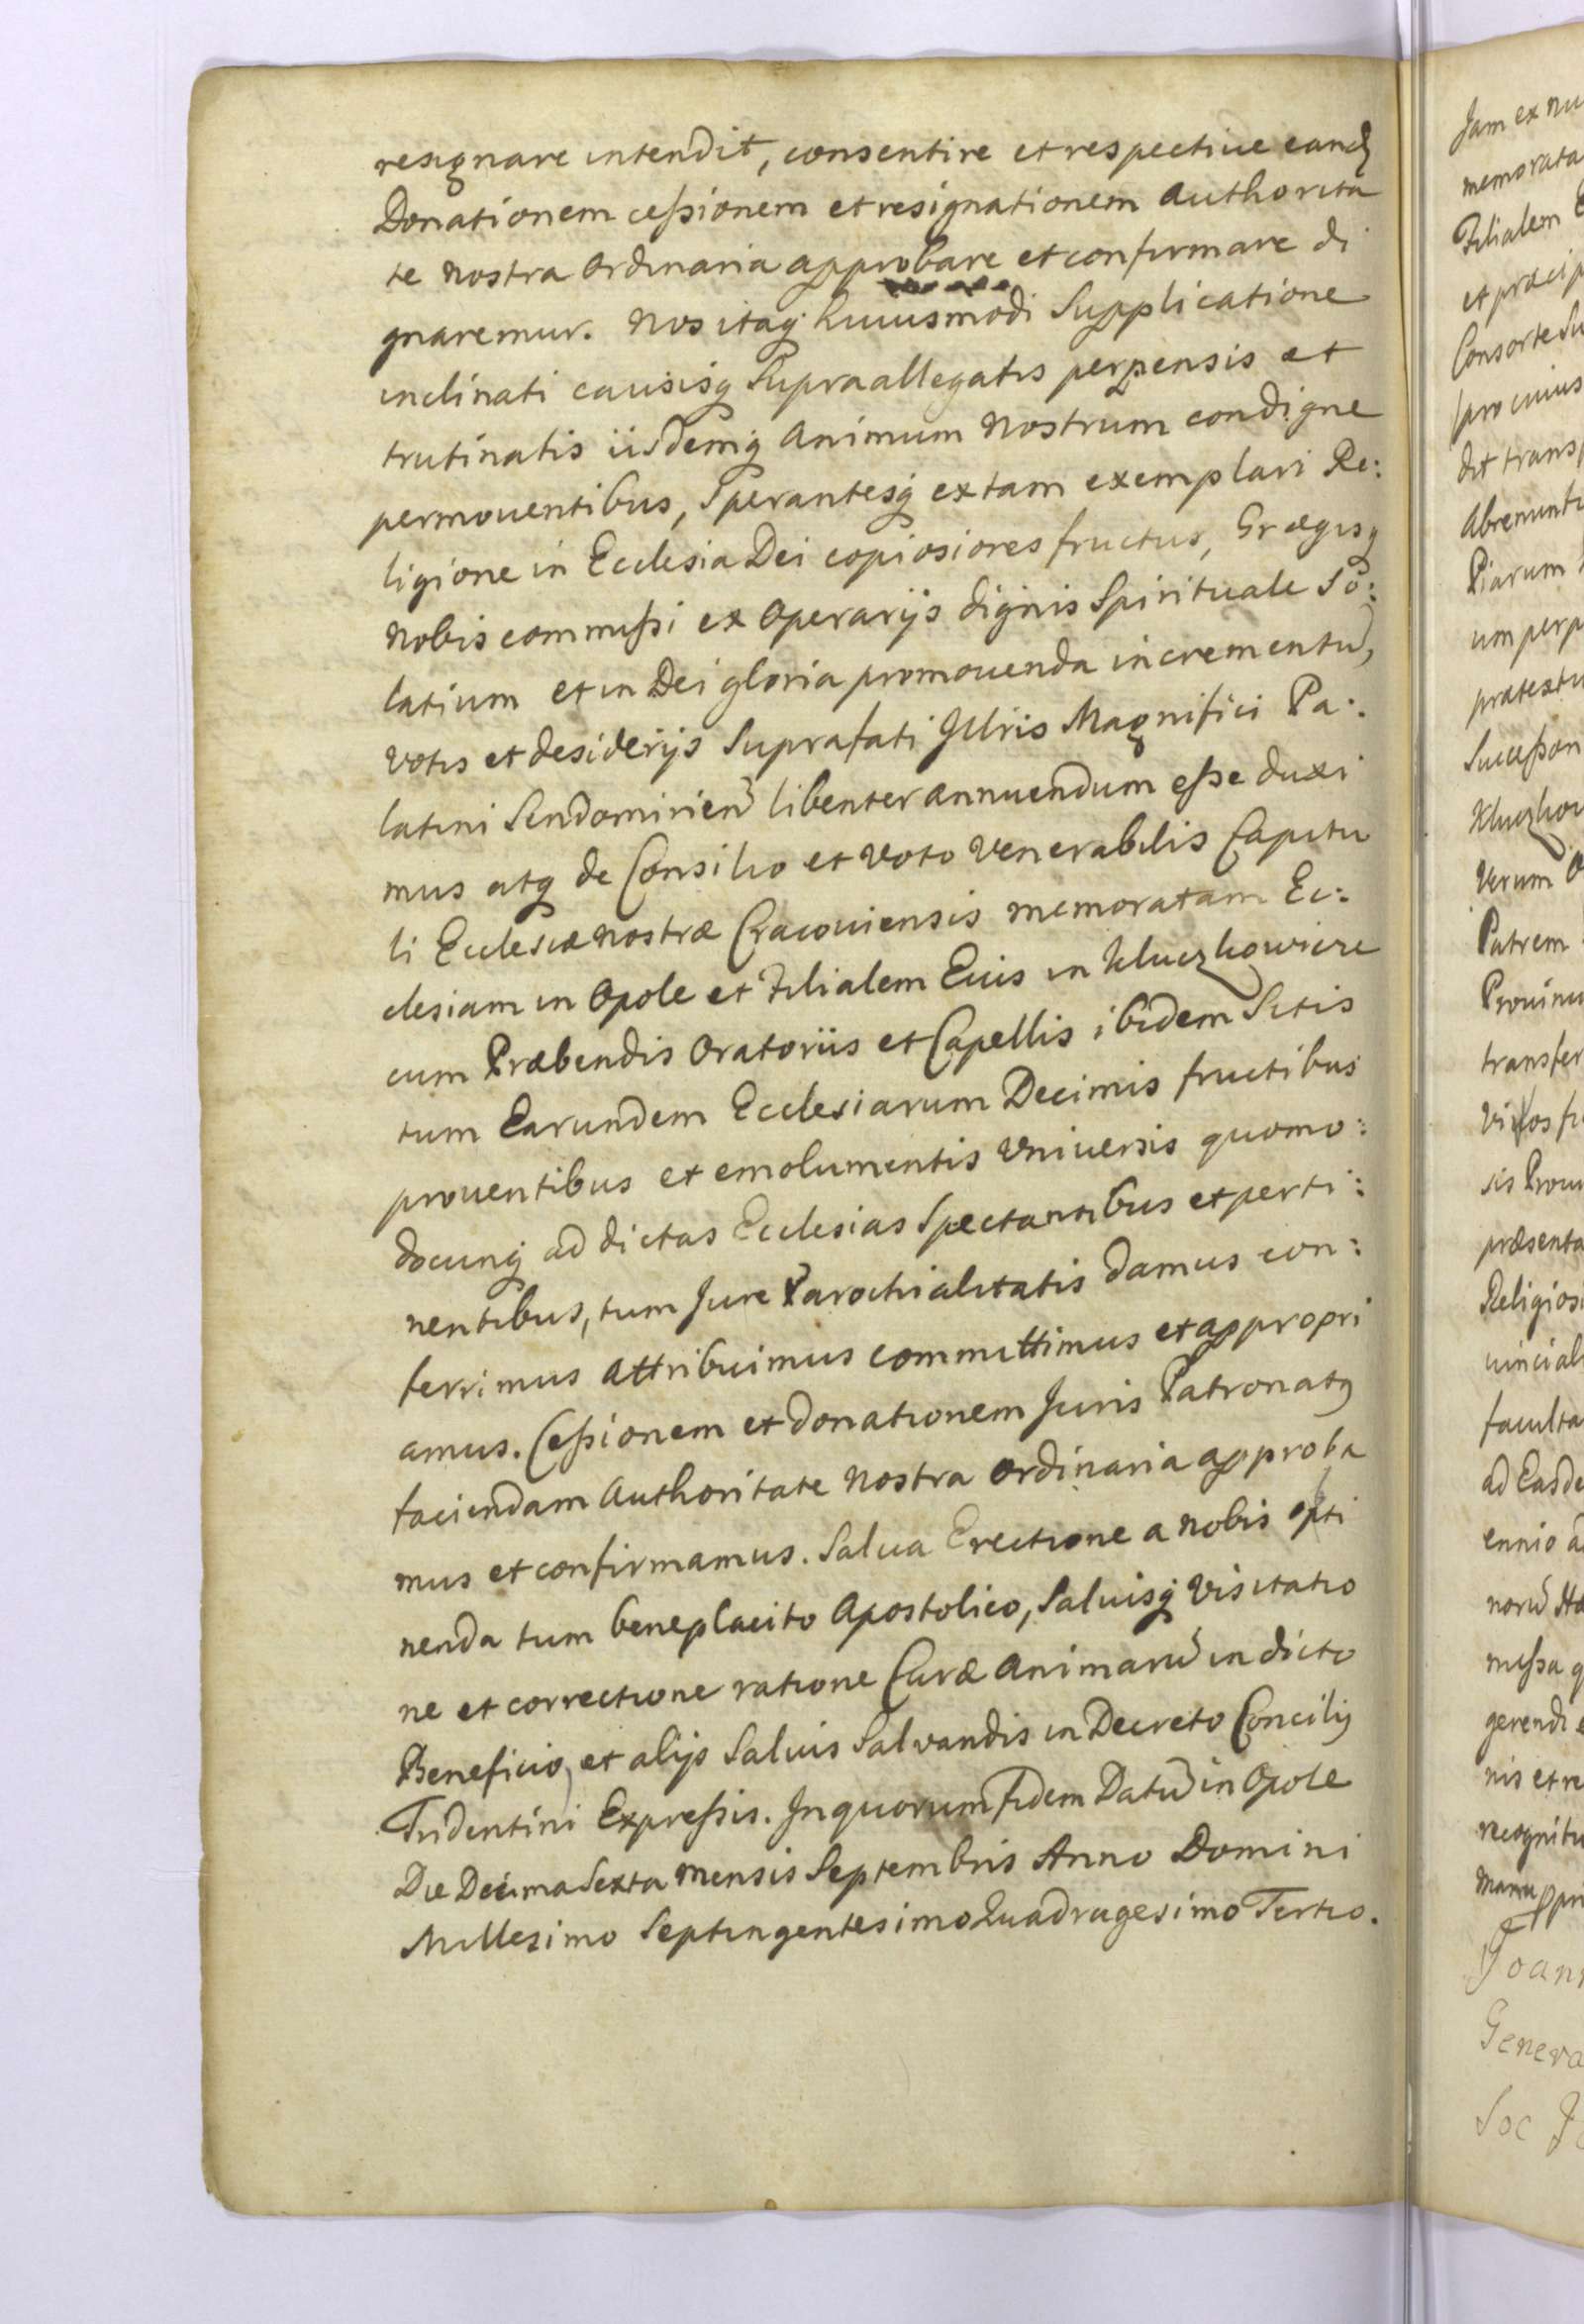 resignare intendit, consentire et respective eandē
Donationem cessionem et resignationem Authorita
te Nostra Ordinaria approbare et confirmare di
gnaremur. Nos itaq huiusmodi Supplicatione
inclinati causisq Supraallegatis perpensis et
trutinatis iisdemq Animum Nostrum condigne
permouentibus, Sperantesq ex tam exemplari Re:
ligione in Ecclesia Dei copiosiores fructus, Gregisq
Nobis commissi ex Operarijs dignis Spirituale So:
latium et in Dei gloria promouenda incrementū,
votis et desiderijs Suprafati Jllris Magnifici Pa:
latini Sendomirieñ libenter annuendum esse duxi
mus atq de Consilio et Voto Venerabilis Capitu
li Ecclesiæ nostræ Cracouiensis memoratam Ec:
clesiam in Opole et Filialem Eius in Kluczkowice
cum Præbendis Oratoriis et Capellis ibidem Sitis
tum Earundem Ecclesiarum Decimis fructibus
prouentibus et emolumentis Vniuersis quomo:
docunq ad dictas Ecclesias Spectantibus et perti:
nentibus, tum Jure Parochialitatis Damus con:
ferrimus Attribuimus committimus et appropri
amus. Cessionem et donationem Juris Patronatq
faciendam Authoritate Nostra Ordinaria approba
mus et confirmamus. Salua Erectione a Nobis opti
nenda tum beneplacito Apostolico, Saluisq Visitatio
ne et correctione ratione Curæ Animarū in dicto
Beneficio, et alijs Saluis Salvandis in Decreto Concilij
Tridentini Expressis. In quorum Fidem Datū in Opole
Die Decima Sexta Mensis Septembris Anno Domini
Millesimo Septingentesimo Quadragesimo Tertio.
Jam ex nu
memorata
Filialem E
et præcip
Consorte Su
pro cuius
dit transp
Abrenunti
Piarum
um perp
prætextu
Succession
Kluczkow
Verum
Patrem
Prouinci
transfer
sis Prou
præsenta
Religios
uincial
faculta
ad Easde
ennio a
missa q
gerendi e
nis et re
recognitu
Manu ppri
Joan
Genera
Soc J